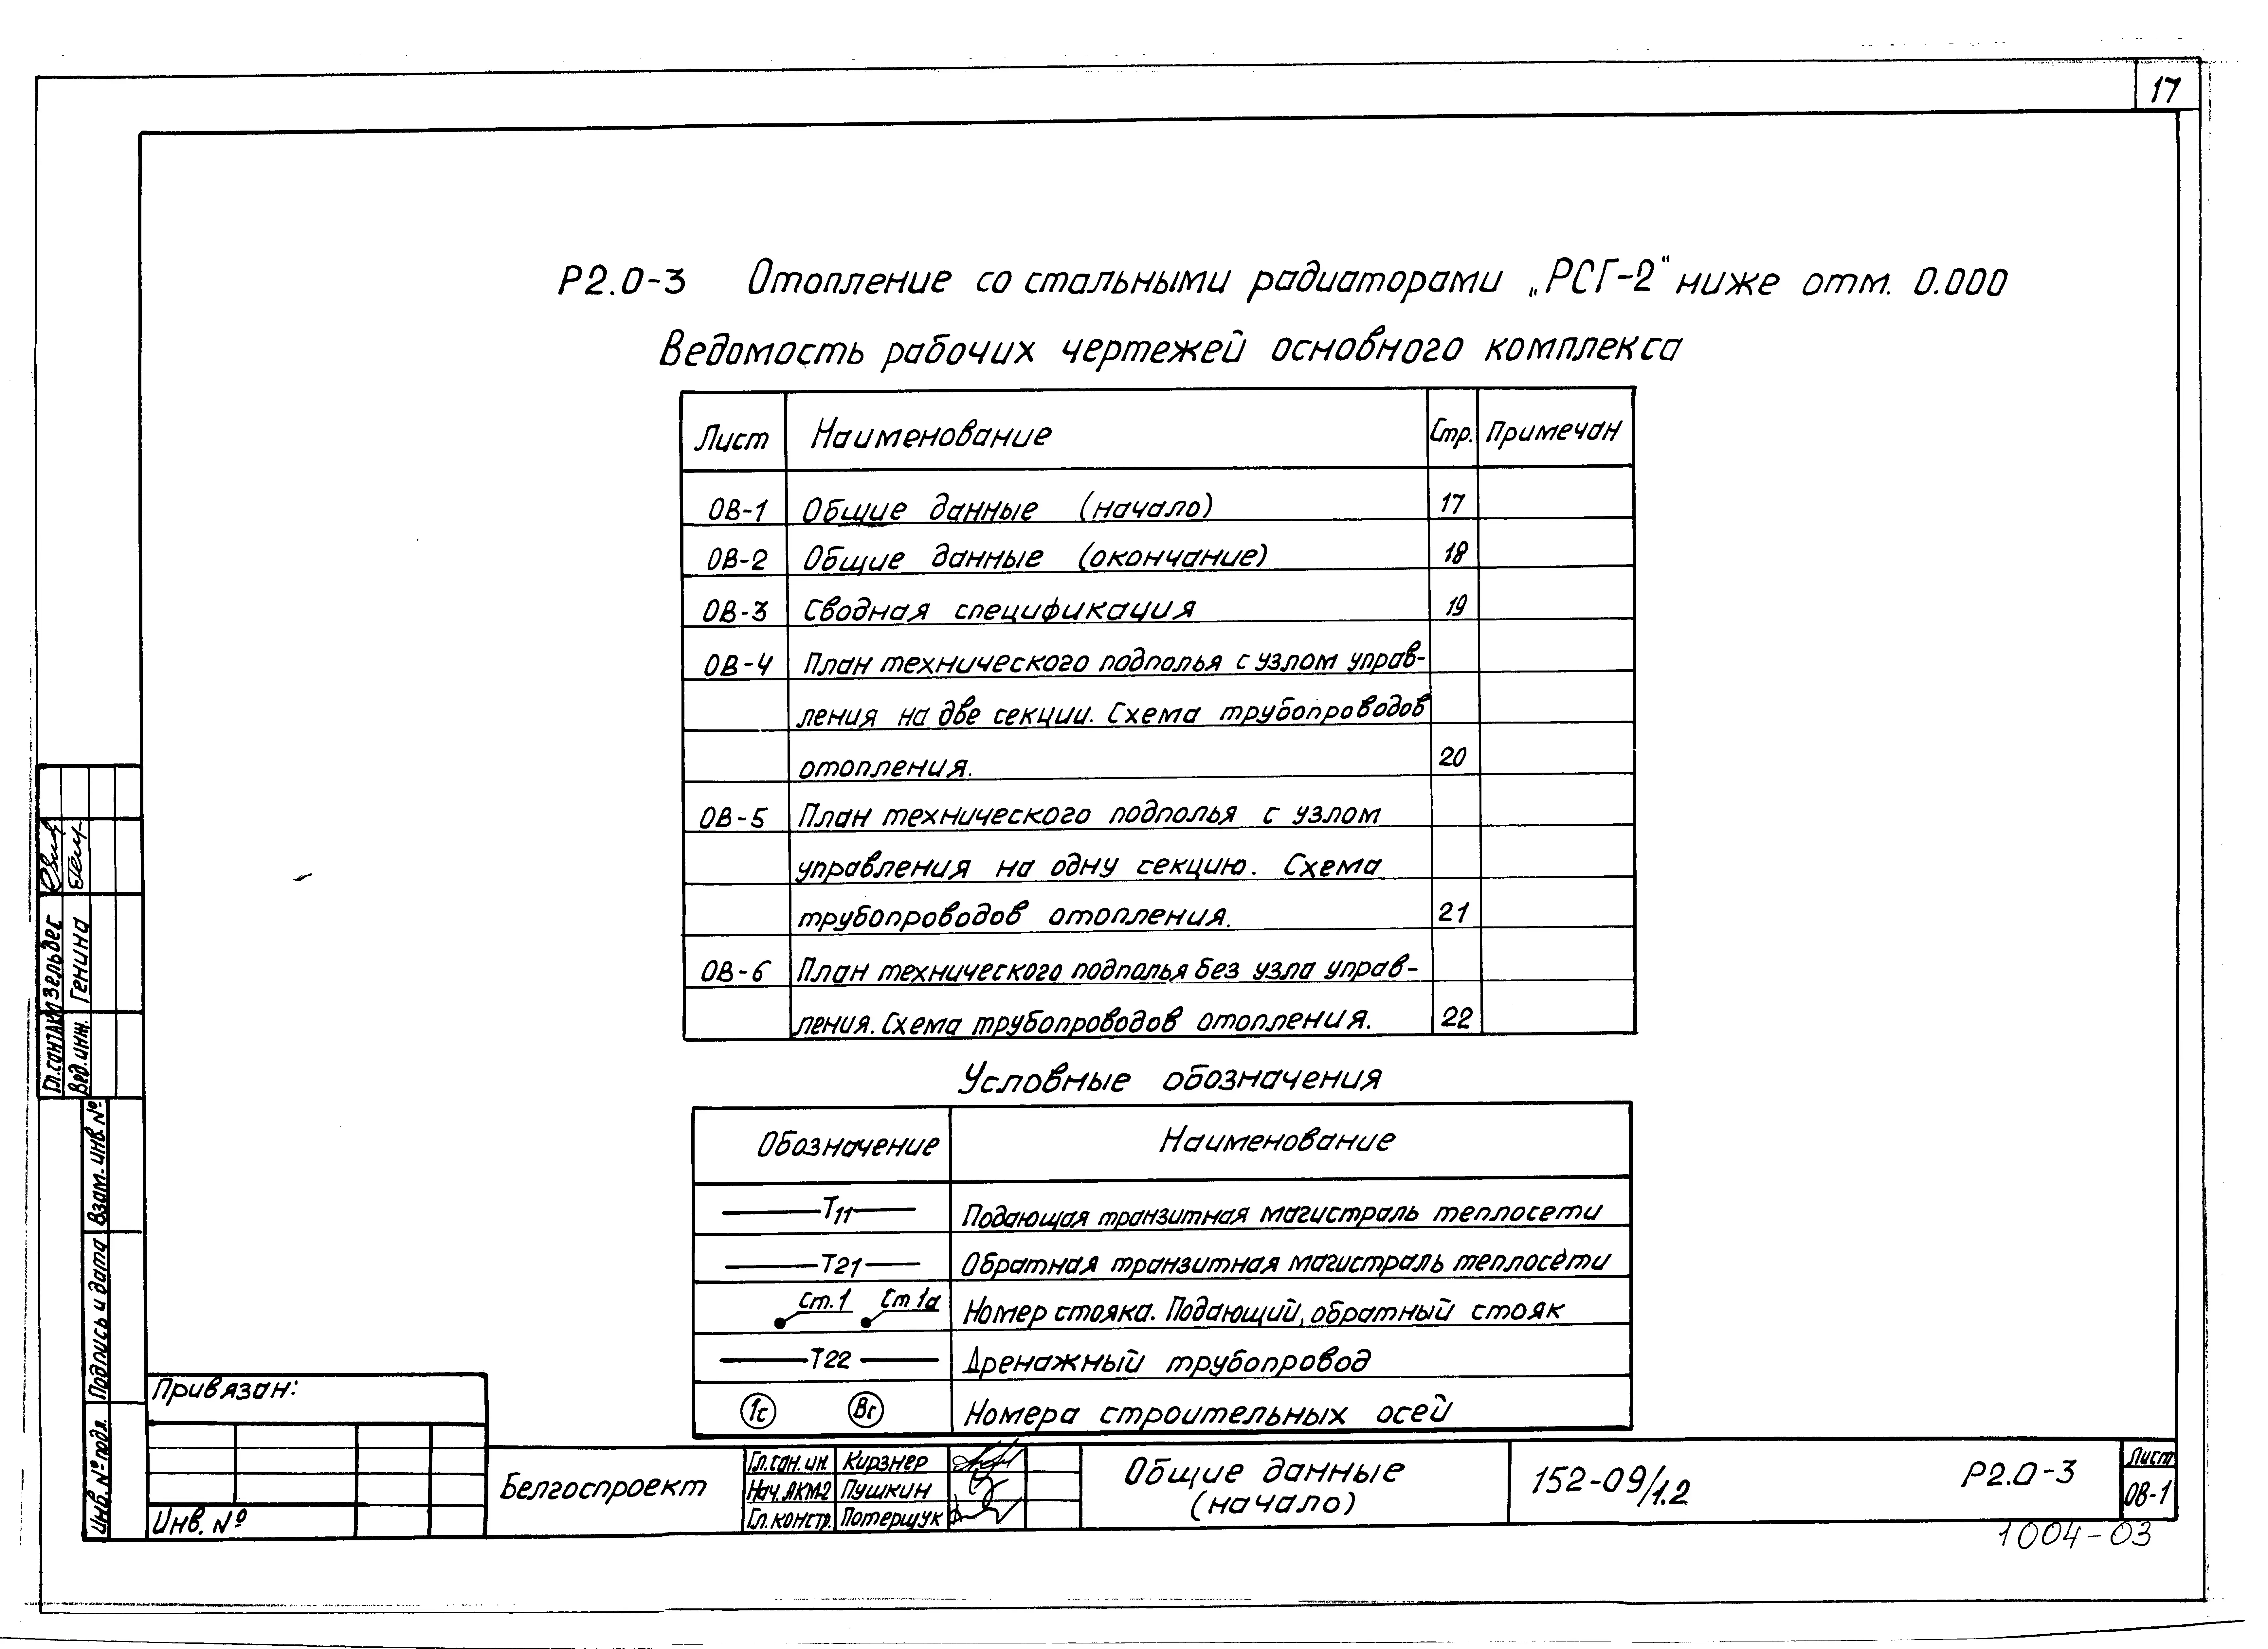 17
Р2.0-3 Отопление со стальными радиаторами „РСГ-2" ниже отм. 0.000
Ведомость рабочих чертежей основного комплекса
Лист Наименование Стр. Примечан
ОВ-1 Общие данные (начало) 17
ОВ-2 Общие данные (окончание) 18
ОВ-3 Сводная спецификация 19
ОВ-4 План технического подполья с узлом управ-
ления на две секции. Схема трубопроводов
отопления. 20
ОВ-5 План технического подполья с узлом
управления на одну секцию. Схема
трубопроводов отопления. 21
ОВ-6 План технического подполья без узла управ-
ления. Схема трубопроводов отопления. 22
Условные обозначения
Обозначение Наименование
Т11 Подающая транзитная магистраль теплосети
Т21 Обратная транзитная магистраль теплосети
Ст.1 Ст 1а Номер стояка. Подающий, обратный стояк
Т22 Дренажный трубопровод
1с Вс Номера строительных осей
Гл.сант.АКМ Зельдес
Вед.инж. Генина
Взам.инв.№
Подпись и дата
Инв.№подл.
Привязан:
Инв.№
Белгоспроект
Гл.сан.ин. Кирзнер
Нач.АКМ-2 Пушкин
Гл.констр. Потерщук
Общие данные
(начало)
152-09/1.2
Р2.0-3
Лист
ОВ-1
1004-03